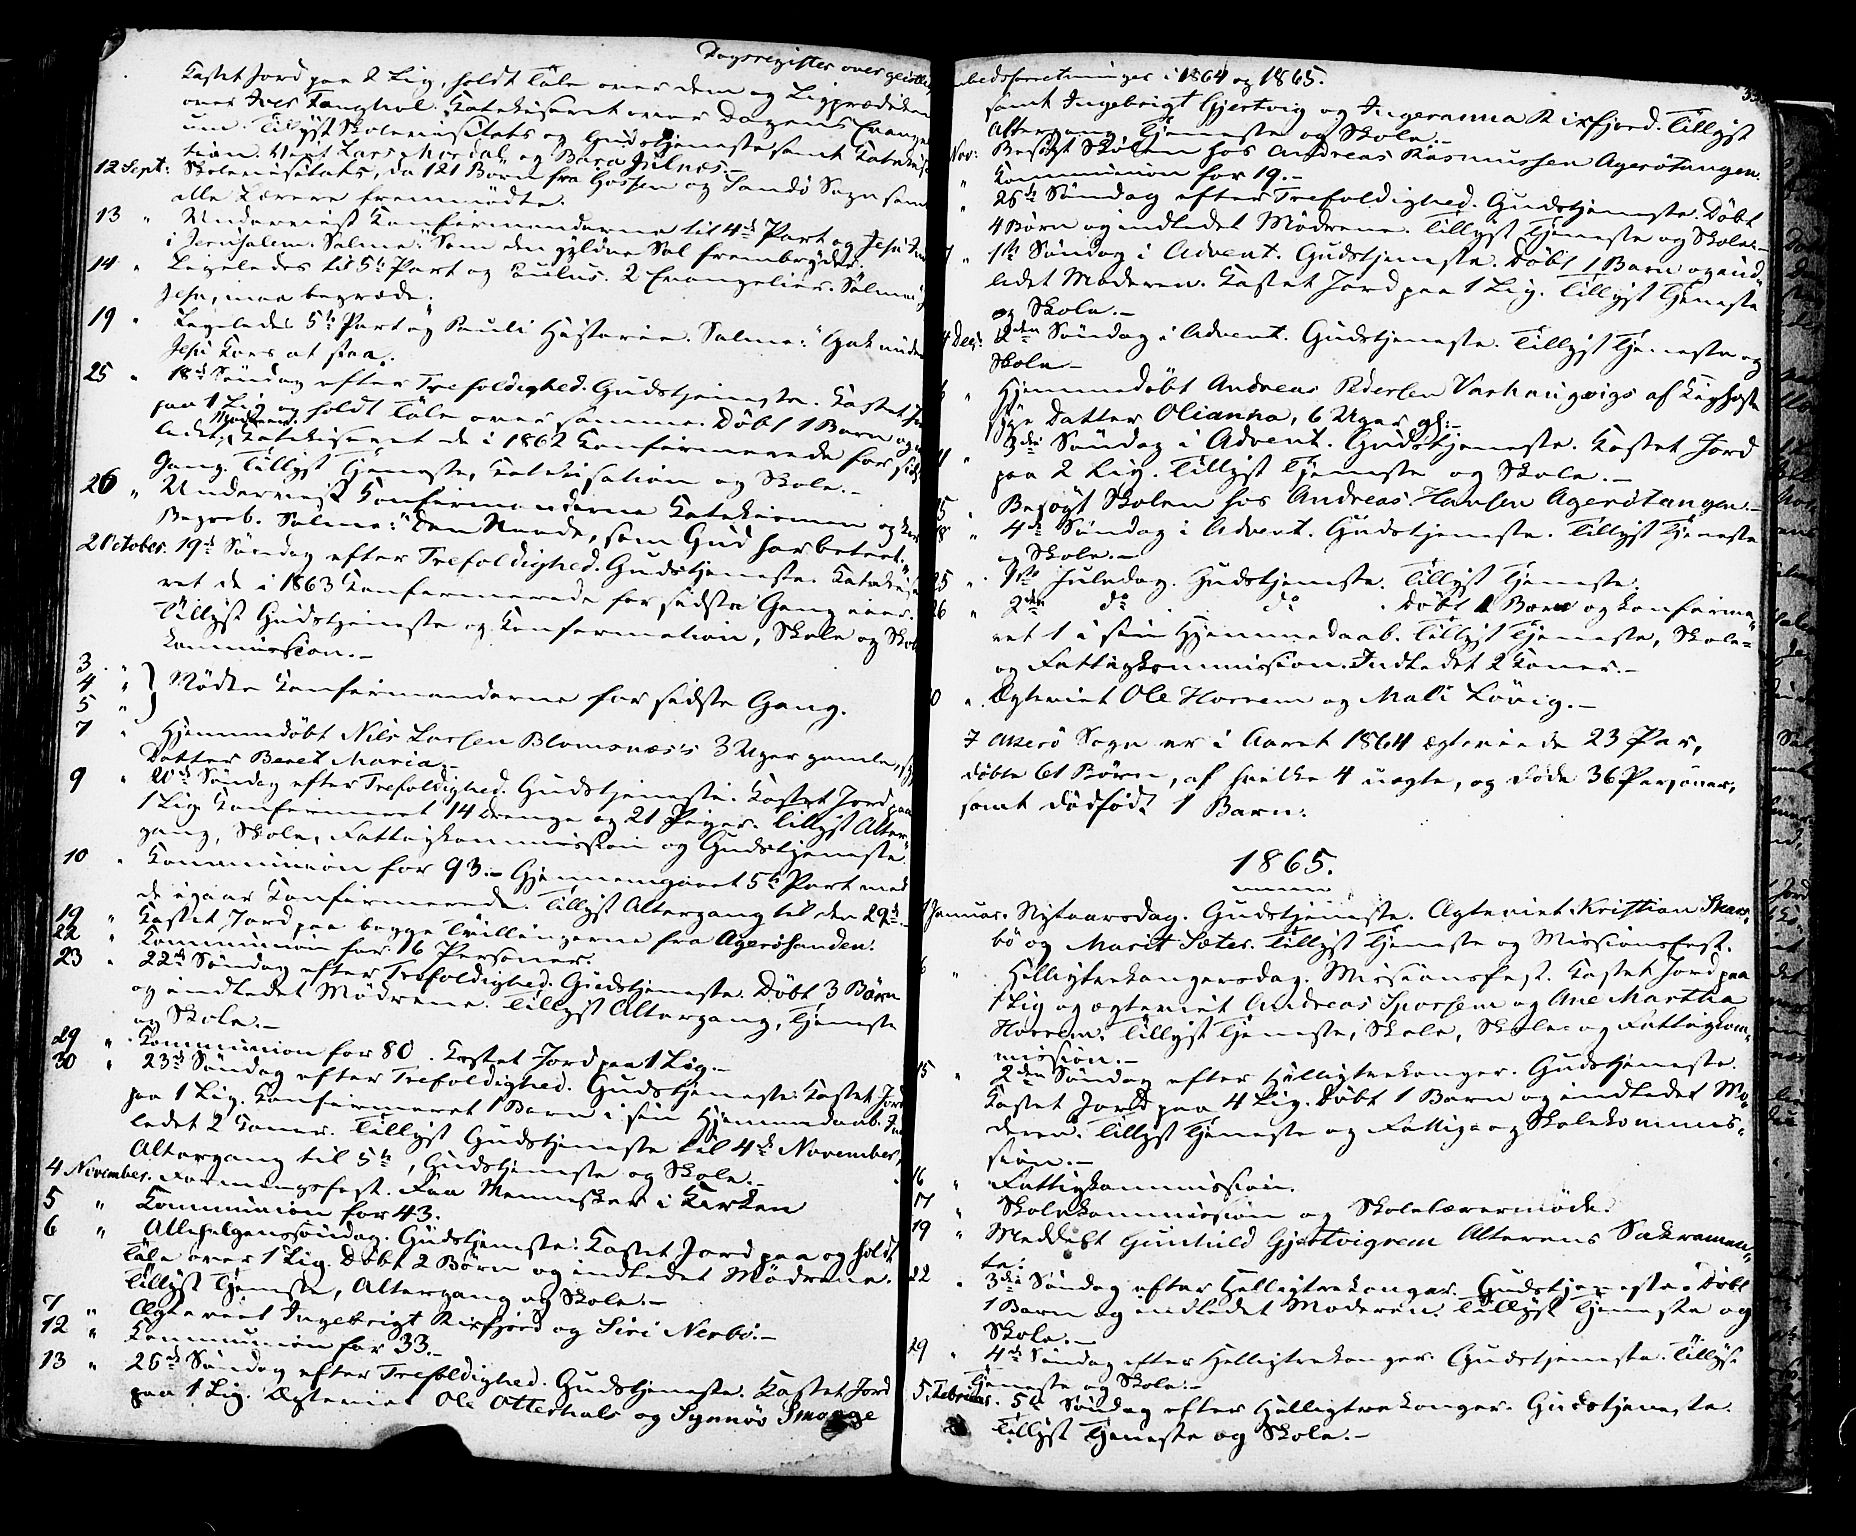 Dagsregister over geistlige
Kastet Jord paa 2 Lig, holdt Tale over dem og Ligprædiken
over Iver Tanghol. Katekiseret over Dagens Evangeli-
um. Tillyst Skolevisitats og Gudstjeneste samt Katekisa-
tion. Viet Lars Mordal og Bara Julnes.-
12 Sept: Skolevisitats, da 121 Børn fra Gossen og Sandø Sogn samt
alle Lærere fremmødte.
13 " Underviist Konfirmanderne til 4de Part og Jesu
i Jerusalem. Salme: "Som den gyldne Sol frembryder.
14 " Ligeledes til 5te Part og Paulus. 2 Evangelier. Salme:
Jesu, maa begræde.
19 " Ligeledes 5te Part og Pauli Historie. Salme: "Gak under
Jesu Kors at staa.
25 " 18de Søndag efter Trefoldighed. Gudstjeneste. Kastet Jord
paa 1 Lig og holdt Tale over samme. Døbt 1 Barn og ind-
ledet Moderen. Katekiseret de i 1862 Konfirmerede for sidste
Gang. Tillyst Tjeneste, Katekisation og Skole.-
26 " Underviist Konfirmanderne Katekismen og
Begreb. Salme: "Den Naade, som Gud har beteet.
2 October. 19de Søndag efter Trefoldighed. Gudstjeneste. Katekise-
ret de i 1863 Konfirmerede for sidste Gang iaar.
Tillyst Gudstjeneste og Konfirmation, Skole og Skole
kommission.-
3 "
4 " Mødte Konfirmanderne for sidste Gang.
5 "
7 " Hjemmedøbt Nils Larsen Blomsnæs's 3 Uger gamle, syge
Datter Beret Maria.-
9 " 20de Søndag efter Trefoldighed. Gudstjeneste. Kastet Jord paa
1 Lig. Konfirmeret 14 Drenge og 21 Piger. Tillyst Alter-
gang, Skole, Fattigkommission og Gudstjeneste.
10 " Kommunion for 93.- Gjennemgaaet 5te Part med
de igaar Konfirmerede. Tillyst Altergang til den 29de.
19 " Kastet Jord paa begge Tvillingerne fra Agerøsanden.
22 " Kommunion for 16 Personer.
23 " 22de Søndag efter Trefoldighed. Gudstjeneste. Døbt 3 Børn
og indledet Mødrene. Tillyst Altergang, Tjeneste
og Skole.-
29 " Kommunion for 80. Kastet Jord paa 1 Lig.-
30 " 23de Søndag efter Trefoldighed. Gudstjeneste. Kastet Jord
paa 1 Lig. Konfirmeret 1 Barn i sin Hjemmedaab. Ind
ledet 2 Koner. Tillyst Gudstjeneste til 4de November,
Altergang til 5te, Gudstjeneste og Skole.-
4 November. Faa Mennesker i Kirken
5 " Kommunion for 43.
6 " Allehelgenssøndag. Gudstjeneste. Kastet Jord paa og holdt
Tale over 1 Lig. Døbt 2 Børn og indledet Mødrene.
Tillyst Tjeneste, Altergang og Skole.-
7 " Ægteviet Ingebrigt Rixfjord og Siri Nerbø.-
12 " Kommunion for 33.-
13 " 25de Søndag efter Trefoldighed. Gudstjeneste. Kastet Jord
paa 1 Lig. Ægteviet Ole Otterhals og Synnøv Smogge
Embedsforretninger i 1864 og 1865.
samt Ingebrigt Gjertvig og Ingeranna Rixfjord. Tillyst
Altergang, Tjeneste og Skole.-
Nov: Besøgt Skolen hos Andreas Rasmussen Agerøtangen.
" Kommunion for 19.-
" 26de Søndag efter Trefoldighed. Gudstjeneste. Døbt
4 Børn og indledet Mødrene. Tillyst Tjeneste og Skole.-
7 " 1ste Søndag i Advent. Gudstjeneste. Døbt 1 Barn og ind-
ledet Moderen. Kastet Jord paa 1 Lig. Tillyst Tjeneste
og Skole.-
4 Dec: 2den Søndag i Advent. Gudstjeneste. Tillyst Tjeneste og
Skole.-
" Hjemmedøbt Andreas Pedersen Varhaugvigs af Kighoste
syge Datter Olianna, 6 Uger gl:-
" 3die Søndag i Advent. Gudstjeneste. Kastet Jord
paa 2 Lig. Tillyst Tjeneste og Skole.-
15 " Besøgt Skolen hos Andreas Hansen Agerøtangen.-
18 " 4de Søndag i Advent. Gudstjeneste. Tillyst Tjeneste
og Skole.-
25 " 1ste Juledag. Gudstjeneste. Tillyst Tjeneste.
26 " 2den do do. Døbt 1 Barn og konfirme-
ret 1 i sin Hjemmedaab. Tillyst Tjeneste, Skole-
og Fattigkommission. Indledet 2 Koner.-
0 " Ægteviet Ole Horrem og Mali Løvig.-
I Agerø Sogn er i Aaret 1864 ægteviede 23 Par,
døbte 61 Børn, af hvilke 4 uægte, og døde 36 Personer,
samt dødfødt 1 Barn.
1865.
1 Januar. Nytaarsdag. Gudstjeneste. Ægteviet Kristian Skar-
bø og Marit Sæter. Tillyst Tjeneste og Missionsfest.
6 " Helligtrekongersdag. Missionsfest. Kastet Jord paa
1 Lig og ægteviet Andreas Sporsem og Ane Martha
Horrem. Tillyst Tjeneste, Skole, Skole- og Fattigkom-
mission.-
15 " 2den Søndag efter Helligtrekonger. Gudstjeneste.
Kastet Jord paa 4 Lig. Døbt 1 Barn og indledet Mo-
deren. Tillyst Tjeneste og Fattig- og Skolekommis-
sion.-
16 " Fattigkommission.
17 " Skolekommission og Skolelærermøde.
19 " Meddelt Gunhild Gjertvigrem Alterens Sakramen-
te.
22 " 3die Søndag efter Helligtrekonger. Gudstjeneste. Døbt
1 Barn og indledet Moderen. Tillyst Tjeneste og
Skole.-
29 " 4de Søndag efter Helligtrekonger. Gudstjeneste. Tillyst
Tjeneste og Skole.-
5 Februar. 5te Søndag efter Helligtrekonger. Gudstjeneste.
Tillyst Tjeneste og Skole.-